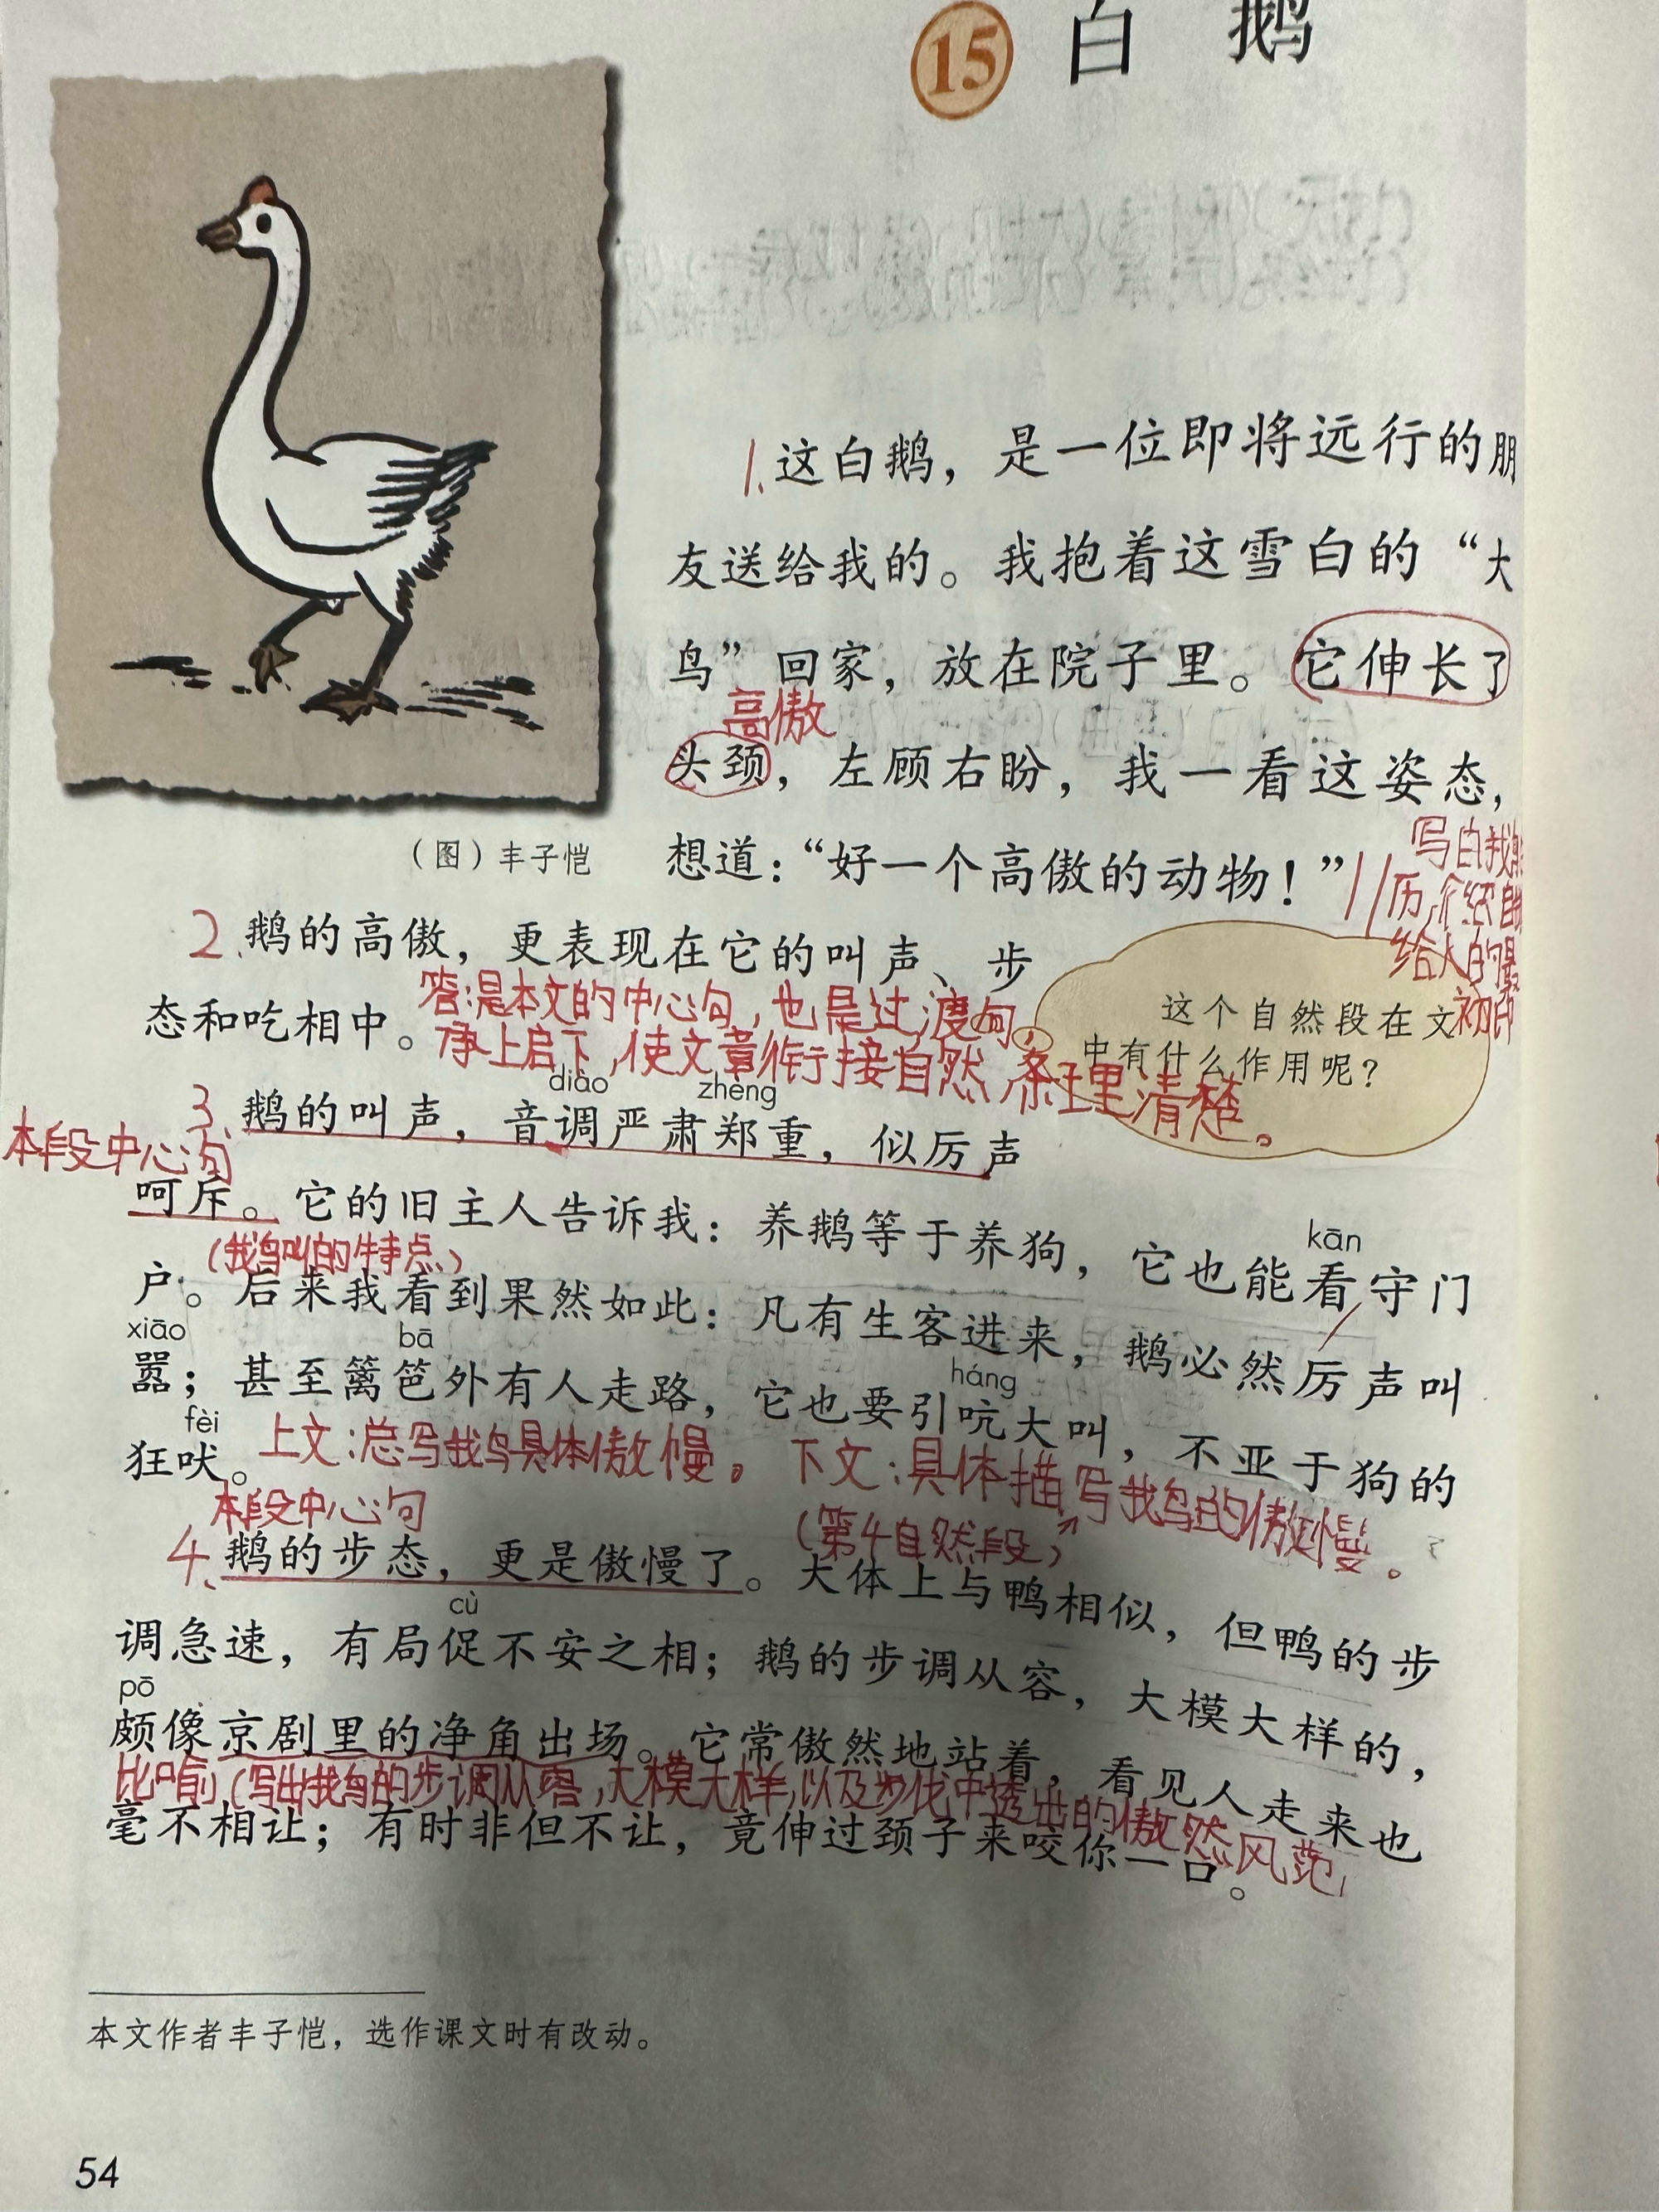 15 白 鹅
1、这白鹅，是一位即将远行的朋
友送给我的。我抱着这雪白的“大
鸟”回家，放在院子里。它伸长了
高傲
头颈，左顾右盼，我一看这姿态，
想道：“好一个高傲的动物！”
（图）丰子恺
写白鹅
历，介绍自
给人的最
初印
2、鹅的高傲，更表现在它的叫声、步
态和吃相中。
答：是本文的中心句，也是过渡句，
承上启下，使文章衔接自然，条理清楚。
这个自然段在文
中有什么作用呢？
diào zhèng
3、鹅的叫声，音调严肃郑重，似厉声
本段中心句
呵斥。它的旧主人告诉我：养鹅等于养狗，它也能看守门
（鹅叫的特点）
kān
户。后来我看到果然如此：凡有生客进来，鹅必然厉声叫
xiāo bā háng
嚣；甚至篱笆外有人走路，它也要引吭大叫，不亚于狗的
fèi
狂吠。
上文：总写鹅具体傲慢。 下文：具体描写鹅的傲慢。
（第4自然段）
本段中心句
4、鹅的步态，更是傲慢了。大体上与鸭相似，但鸭的步
cù
调急速，有局促不安之相；鹅的步调从容，大模大样的，
pō
颇像京剧里的净角出场。它常傲然地站着，看见人走来也
比喻（写出鹅的步调从容，大模大样，以及步伐中透出的傲然风范）
毫不相让；有时非但不让，竟伸过颈子来咬你一口。
本文作者丰子恺，选作课文时有改动。
54